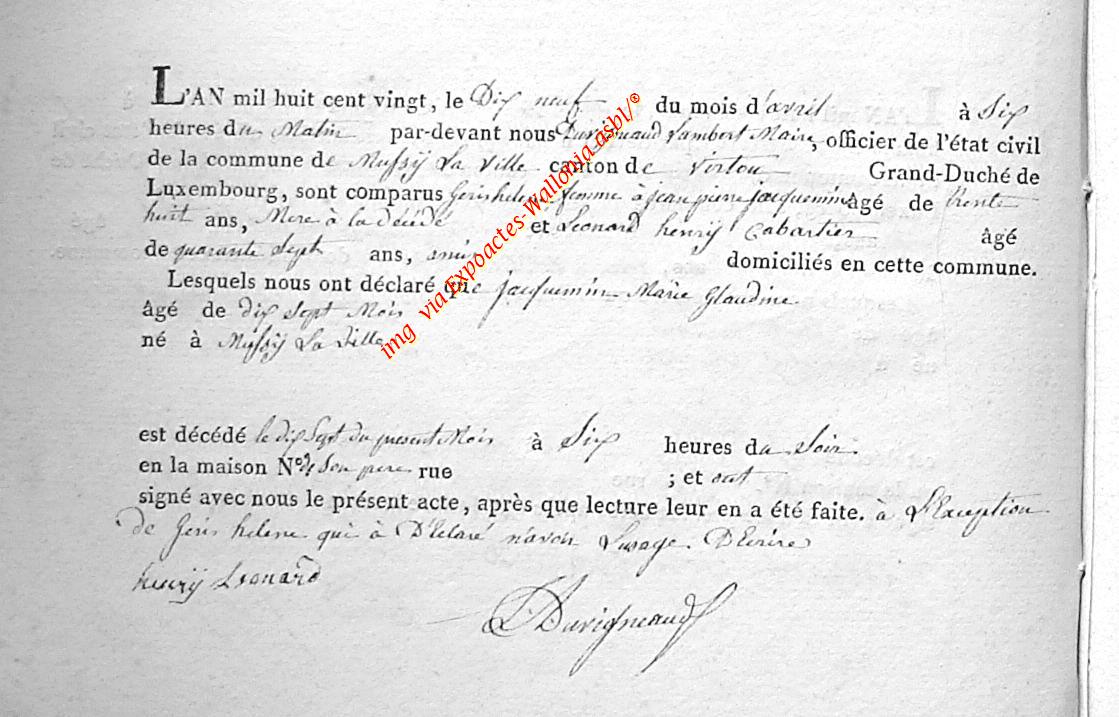 L'AN mil huit cent vingt, le Dix neuf du mois d'avril à Six
heures du Matin par-devant nous Duvigneaud Lambert Maire, officier de l'état civil
de la commune de Mussÿ La Ville canton de Virton Grand-Duché de
Luxembourg, sont comparus Geris helene femme à jean pierre jacquemin âgé de Trente
huit ans, Mere à la décédé et Leonard henrÿ Cabartier âgé
de quarante Sept ans, amis domiciliés en cette commune.
Lesquels nous ont déclaré que jacquemin Marie Glaudine
âgé de dix Sept Mois
né à Mussÿ La Ville
est décédé le dix Sept du present Mois à Six heures du Soir
en la maison N° de Son pere rue ; et ont
signé avec nous le présent acte, après que lecture leur en a été faite. à L'Exception
de Geris helene qui à D'Eclaré n'avoir Lusage D'Ecrire
henrÿ Leonard
L Duvigneaud
img via Expoactes-Wallonia asbl/©